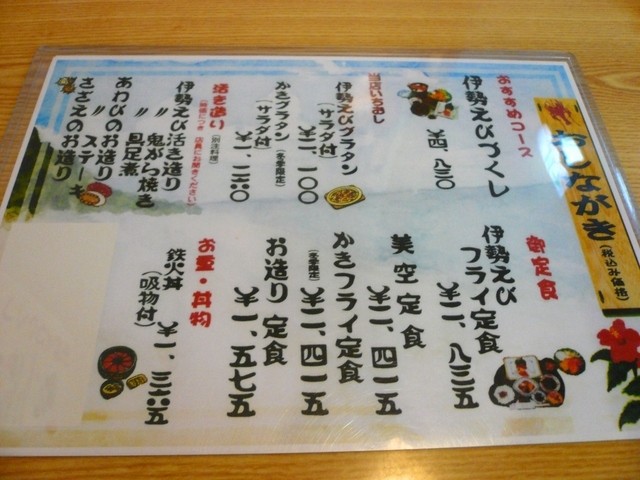 おしながき
(税込み価格)
おすすめコース
伊勢えびづくし
¥四、八三〇
当店いちおし
伊勢えびグラタン
(サラダ付)
¥二、一〇〇
かきグラタン(冬季限定)
(サラダ付)
¥一、二六〇
活き造り(別注料理)
(時価につき、店員にお聞きください)
伊勢えび活き造り
〃 鬼がら焼き
〃 具足煮
あわびのお造り
〃 ステーキ
さざえのお造り
御定食
伊勢えび
フライ定食
¥二、八三五
美空定食
¥二、四一五
かきフライ定食
(冬季限定) ¥二、四一五
お造り定食
¥一、五七五
お重・丼物
鉄火丼 ¥一、三六五
(吸物付)